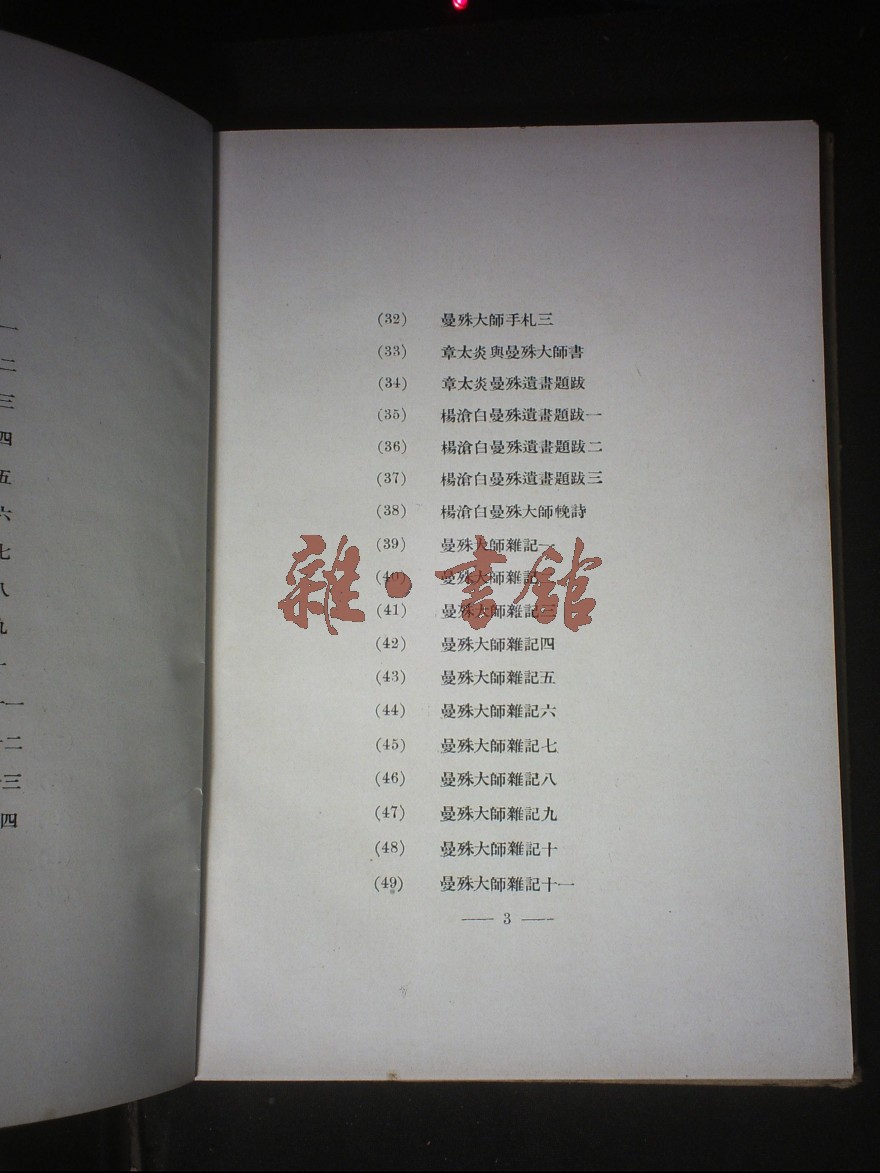 一
二
三
四
五
六
七
八
九
十
十一
十二
十三
四
(32) 曼殊大師手札三
(33) 章太炎與曼殊大師書
(34) 章太炎曼殊遺畫題跋
(35) 楊滄白曼殊遺畫題跋一
(36) 楊滄白曼殊遺畫題跋二
(37) 楊滄白曼殊遺畫題跋三
(38) 楊滄白曼殊大師輓詩
(39) 曼殊大師雜記一
(40) 曼殊大師雜記二
(41) 曼殊大師雜記三
(42) 曼殊大師雜記四
(43) 曼殊大師雜記五
(44) 曼殊大師雜記六
(45) 曼殊大師雜記七
(46) 曼殊大師雜記八
(47) 曼殊大師雜記九
(48) 曼殊大師雜記十
(49) 曼殊大師雜記十一
— 3 —
雜·書館